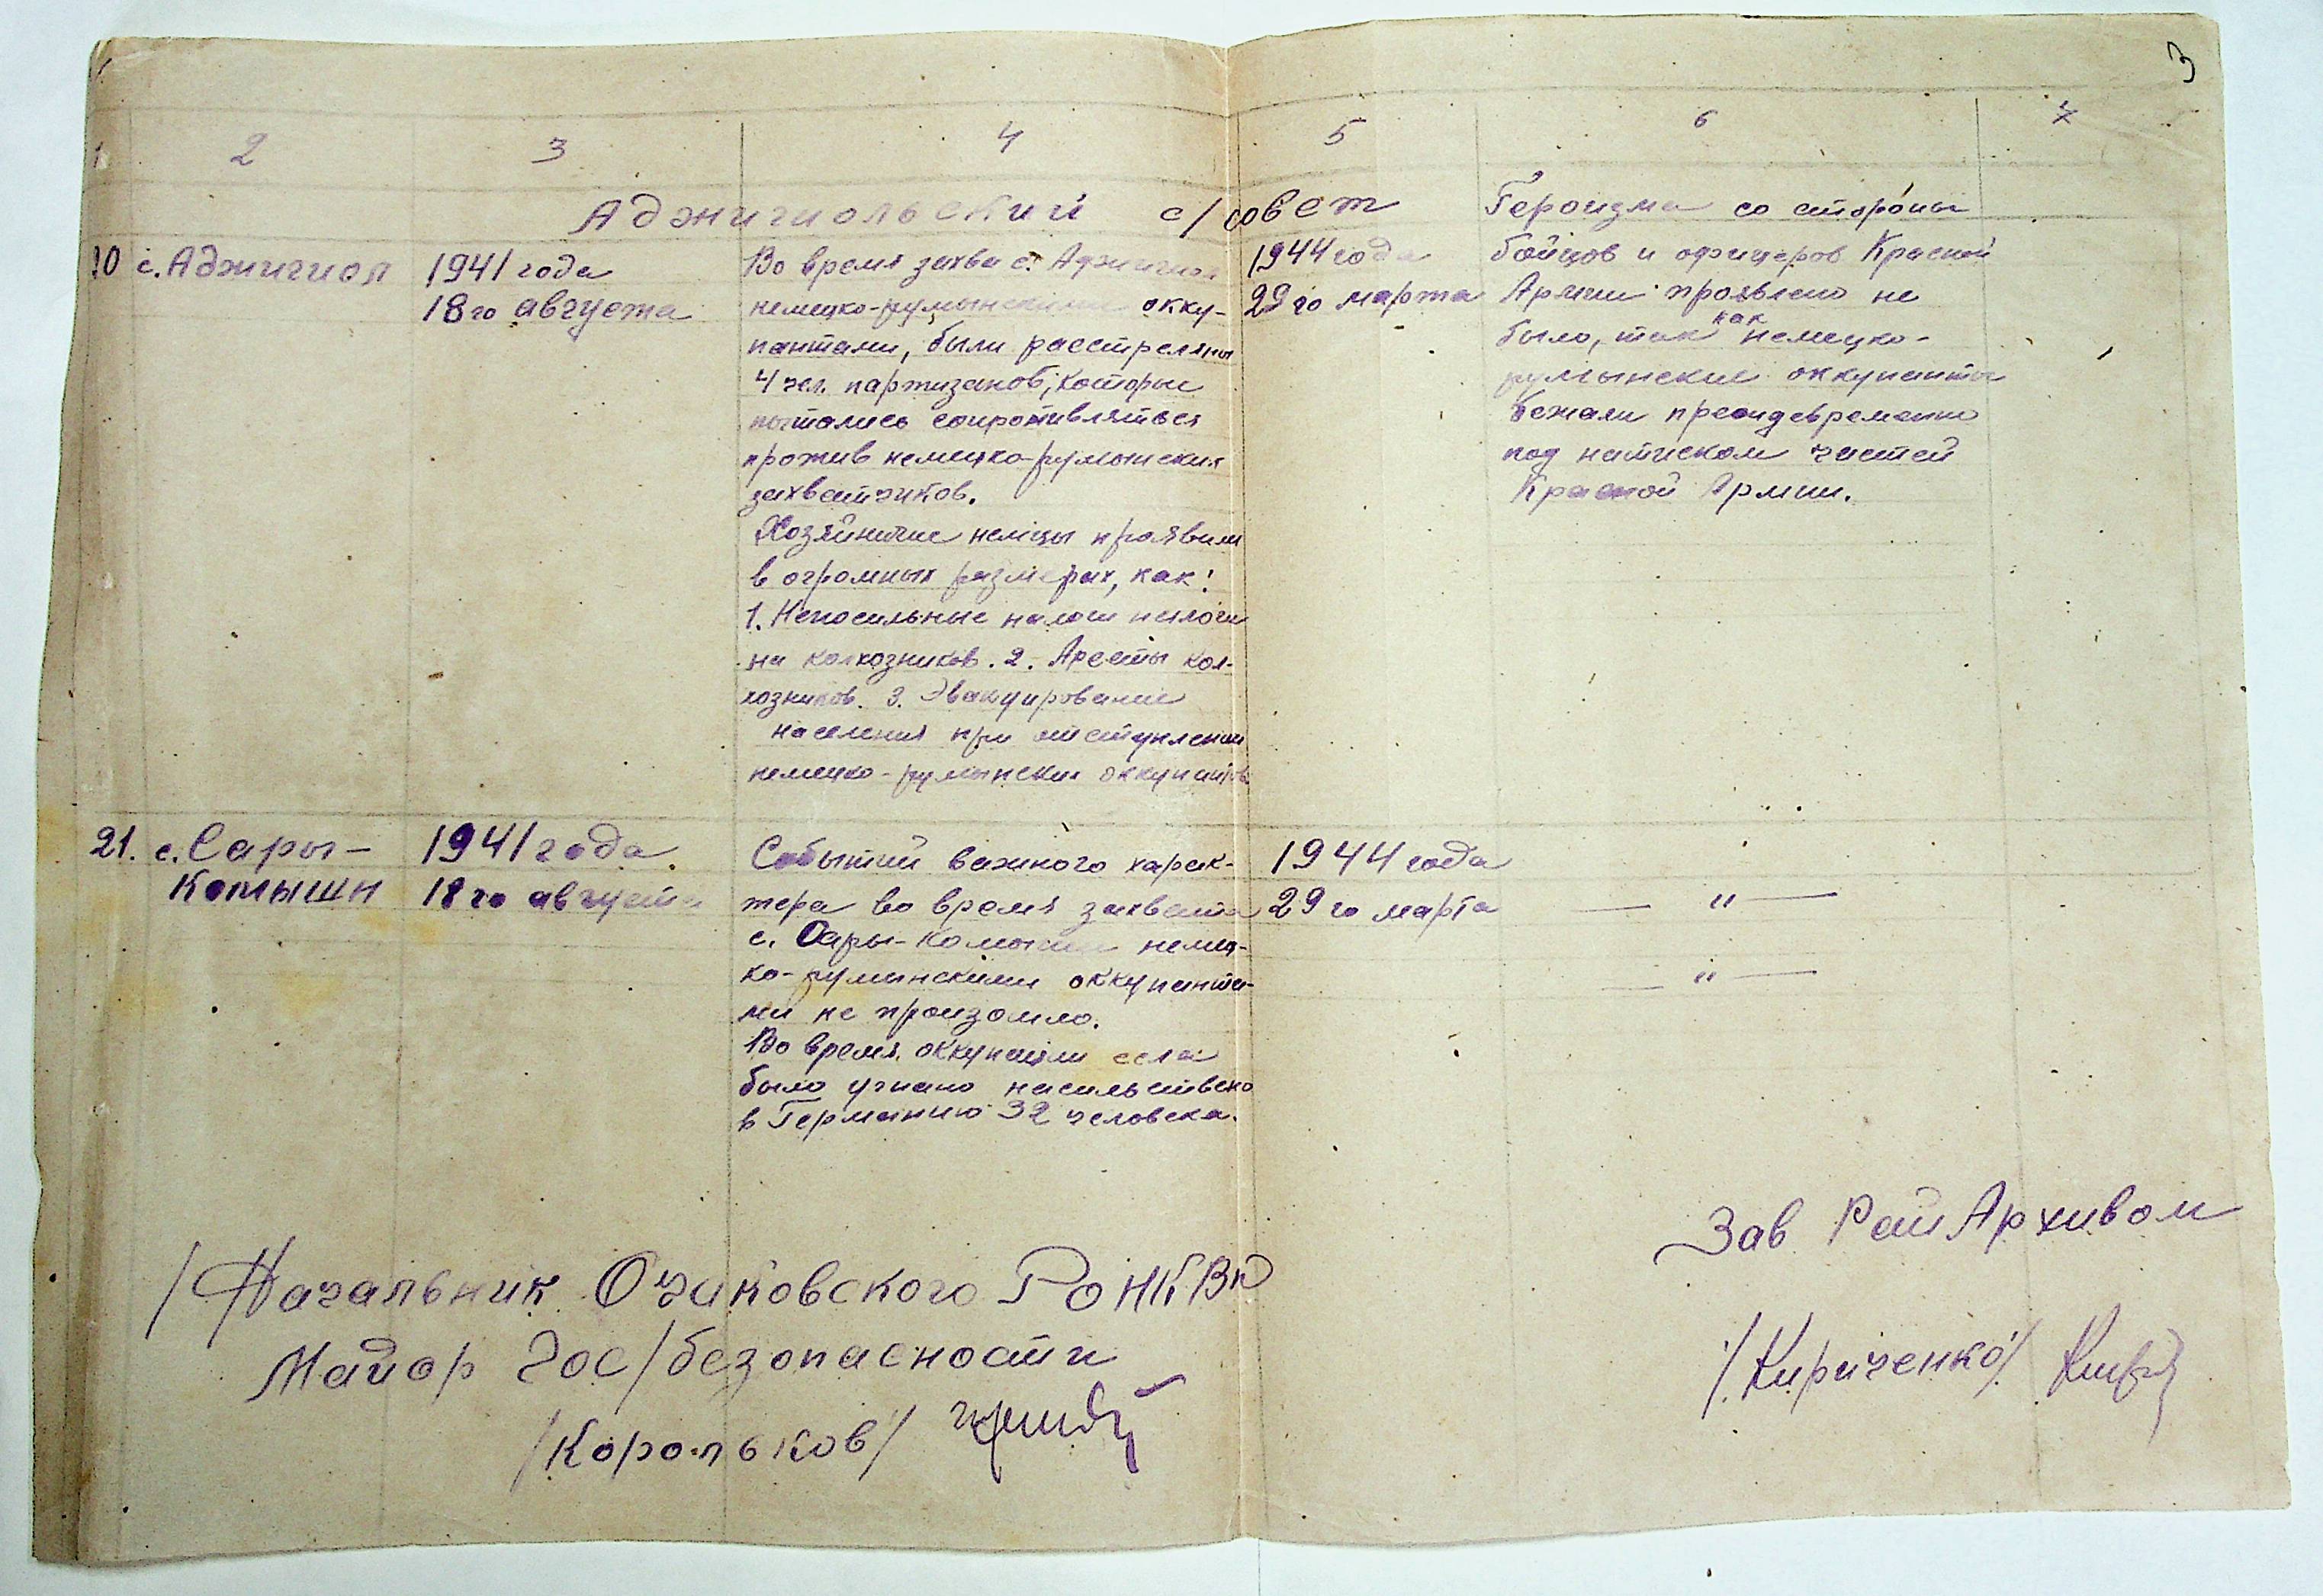 3
1 2 3 4 5 6 7
Аджигиольский с/совет
20 с. Аджигиол
1941 года
18го августа
Во время захва с. Аджигиол
немецко-румынскими окку-
пантами, были расстреляны
4 чел. партизанов, которые
пытались сопротивляться
против немецко-румынских
захватчиков.
Хозяйничие немцы проявили
в огромных размерах, как:
1. Непосильные налоги
на колхозников. 2. Аресты кол-
хозников. 3. Эвакуирование
населения при отступлении
немецко-румынских оккупантов
1944 года
29го марта
Героизма со стороны
бойцов и офицеров Красной
Армии проявлено не
было, так как немецко-
румынские оккупанты
бежали преждевременно
под натиском частей
Красной Армии.
21. с. Сары-
Комышы
1941 года
18го августа
Событий важного харак-
тера во время захвата
с. Сары-Комыши немец-
ко-румынскими оккупанта-
ми не произошло.
Во время оккупации села
было угнано насильствено
в Германию 32 человека.
1944 года
29го марта
— " —
— " —
/Начальник Очаковского РО НКВД
Майор Гос/безопасности
/Корольков/
Зав РайАрхивом
/Кириченко/